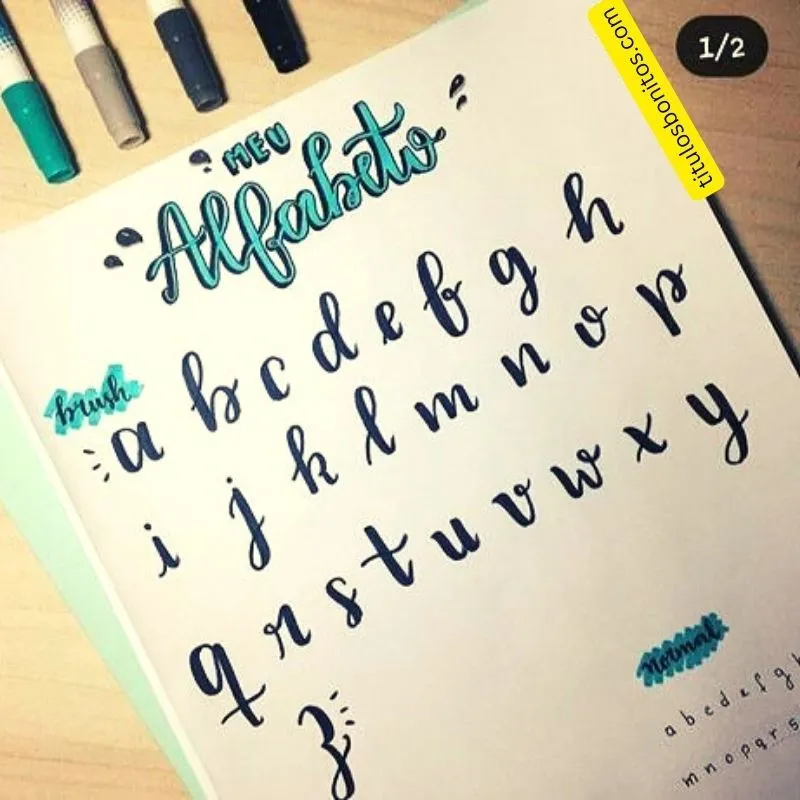 1/2
titulosbonitos.com
MEU
Alfabeto
brush
a b c d e f g h
i j k l m n o p
q r s t u v w x y
z
normal
a b c d e f g h
m n o p q r s